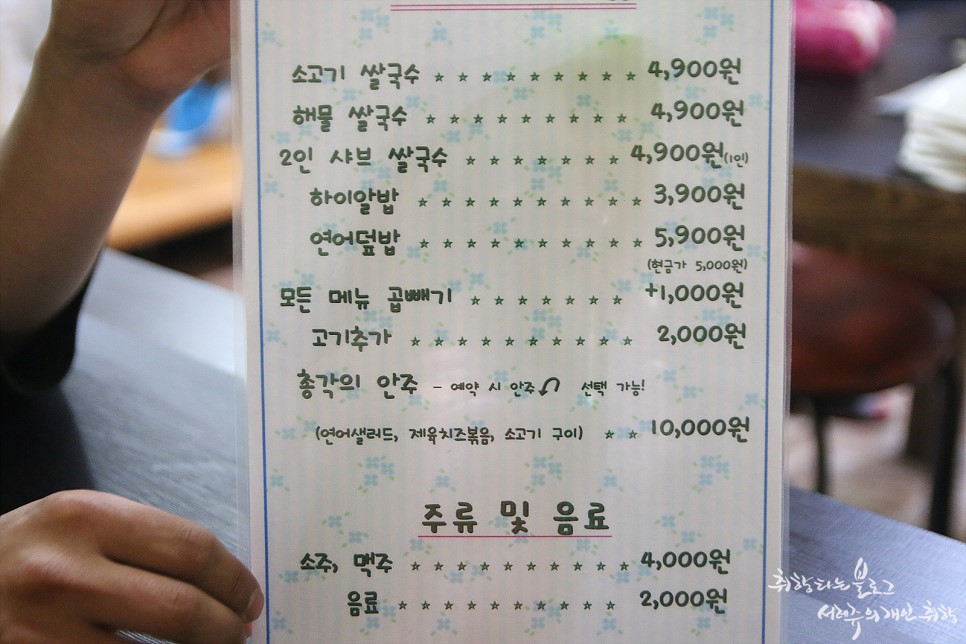 소고기 쌀국수 ★ ★ ★ ★ ★ ★ ★ ★ ★ 4,900원
해물 쌀국수 ★ ★ ★ ★ ★ ★ ★ ★ ★ 4,900원
2인 샤브 쌀국수 ★ ★ ★ ★ ★ ★ ★ 4,900원(1인)
하이알밥 ★ ★ ★ ★ ★ ★ ★ ★ ★ ★ 3,900원
연어덮밥 ★ ★ ★ ★ ★ ★ ★ ★ ★ ★ 5,900원
(현금가 5,000원)
모든 메뉴 곱빼기 ★ ★ ★ ★ ★ ★ ★ +1,000원
고기추가 ★ ★ ★ ★ ★ ★ ★ ★ ★ ★ 2,000원
총각의 안주 - 예약 시 안주 선택 가능!
(연어샐러드, 제육치즈볶음, 소고기 구이) ★ ★ 10,000원
주류 및 음료
소주, 맥주 ★ ★ ★ ★ ★ ★ ★ ★ ★ ★ 4,000원
음료 ★ ★ ★ ★ ★ ★ ★ ★ ★ ★ 2,000원
취향타는 블로그
서현쥬의 개인 취향